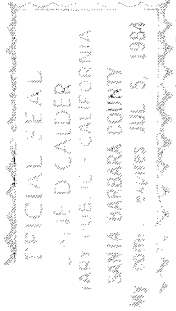 OFFICIAL SEAL
D CALDER
NOTARY PUBLIC - CALIFORNIA
SANTA BARBARA COUNTY
My comm. expires 5, 1984